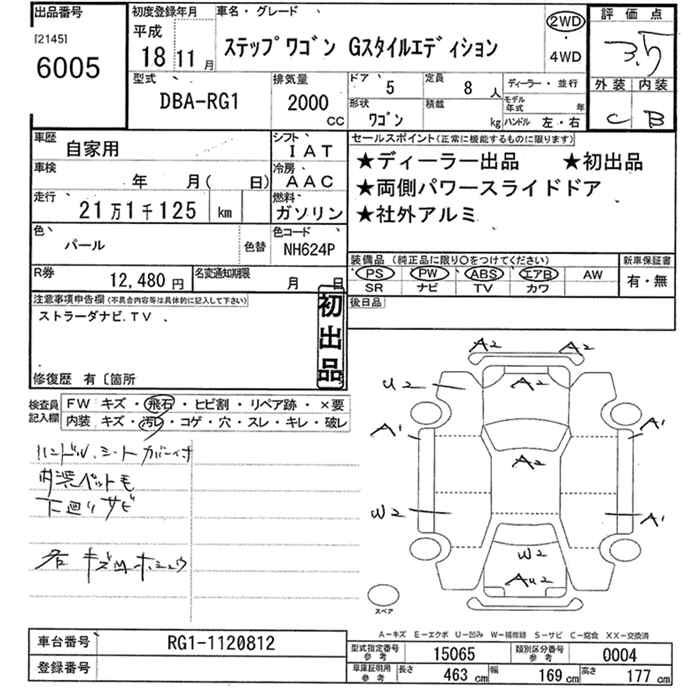 出品番号
[2145]
6005
初度登録年月
平成
18 11 月
車名・グレード
ステップワゴン Gスタイルエディション
2WD
・
4WD
評価点
3.5
外装 内装
C B
型式
DBA-RG1
排気量
2000
CC
ドア
5
定員
8 人
形状
ワゴン
積載
kg
ディーラー・並行
モデル年式 年
ハンドル 左・右
車歴
自家用
シフト
IAT
車検
年 月( 日)
冷房
AAC
走行
21万1千125 km
燃料
ガソリン
色
パール
色替
色コード
NH624P
R券
12,480 円
名変通知期限
月 日
セールスポイント(正常に機能するものに限ります)
★ディーラー出品 ★初出品
★両側パワースライドドア
★社外アルミ
装備品(純正品に限り○をつけてください)
PS PW ABS エアB AW
SR ナビ TV カワ
新車保証書
有・無
後日品
注意事項申告欄(不具合内容等は具体的に記入して下さい)
ストラーダナビ.TV
初出品
修復歴 有〔箇所
検査員
記入欄
FW キズ・飛石・ヒビ割・リペア跡・×要
内装 キズ・汚レ・コゲ・穴・スレ・キレ・破レ
ハンドル.シートカバー付
内装ペット毛
下廻りサビ
A2 A2
U2
A2
A1 A1
A2
W2
A1
W2
AU2
スペア
A-キズ E-エクボ U-凹み W-補修跡 S-サビ C-腐食 XX-交換済
車台番号
RG1-1120812
登録番号
型式指定番号
参考
15065
類別区分番号
参考
0004
車庫証明用
参考
長さ 463 cm 幅 169 cm 高さ 177 cm